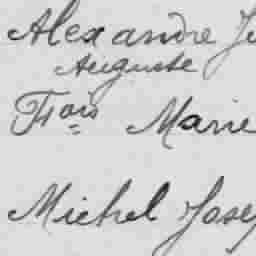 Alexandre
Auguste
Fçois Marie
Michel